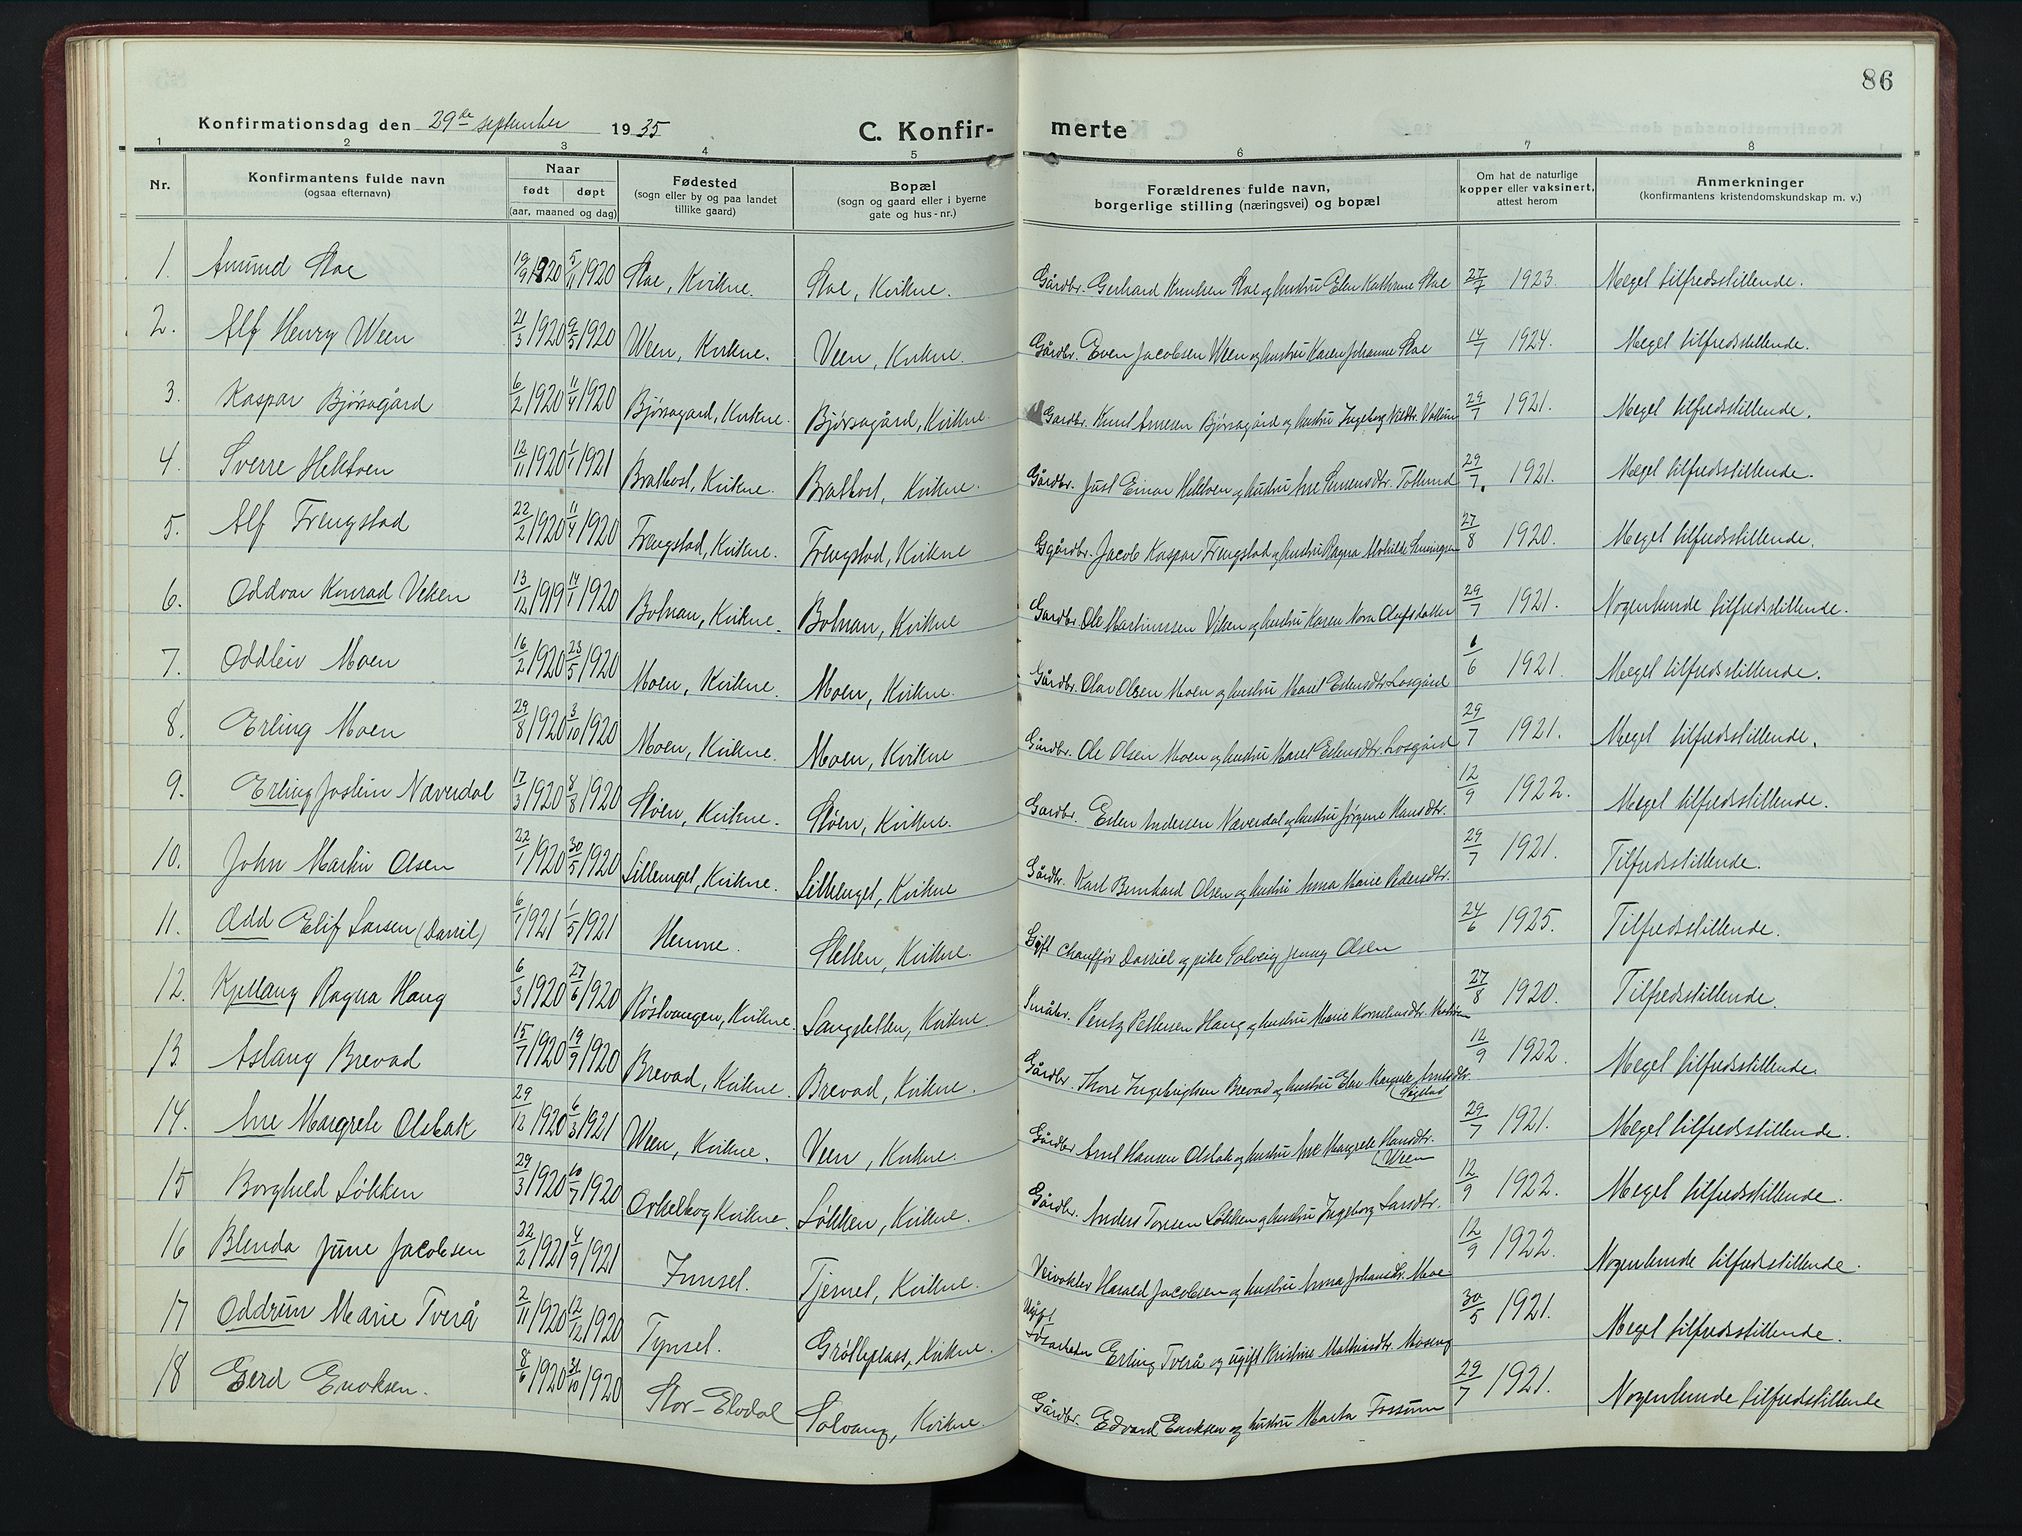 86
Konfirmationsdag den 29de september 1935
C. Konfirmerte
1 2 3 4 5 6 7 8
Nr. Konfirmantens fulde navn (ogsaa efternavn) Naar født døpt (aar, maaned og dag) Fødested (sogn eller by og paa landet tillike gaard) Bopæl (sogn og gaard eller i byerne gate og hus-nr.) Forældrenes fulde navn, borgerlige stilling (næringsvei) og bopæl Om hat de naturlige kopper eller vaksinert, attest herom Anmerkninger (konfirmantens kristendomskundskap m. v.)
1. Amund Stae 19/9 1920 5/11 1920 Stae, Kvikne. Stae, Kvikne. Gårdbr. Gerhard Knutsen Stae og hustru Elen Kathrine Stae 27/7 1923. Meget tilfredsstillende.
2. Alf Henry Ween 21/3 1920 9/5 1920 Ween, Kvikne. Veen, Kvikne. Gårdbr. Even Jacobsen Ween og hustru Karen Johanne Stae 14/7 1924. Meget tilfredsstillende.
3. Kaspar Bjørsagård 6/2 1920 11/4 1920 Bjørsagard, Kvikne. Bjørsagård, Kvikne. Gardbr. Knut Arnesen Bjørsagård og hustru Ingeborg 29/7 1921. Meget tilfredsstillende.
4. Sverre Hektoen 12/11 1920 1/1 1921 Brattost, Kvikne. Brattost, Kvikne. Gårdbr. Just Einar Hektoen og hustru Ane 29/7. 1921. Meget tilfredsstillende.
5. Alf Frengstad 22/2 1920 11/4 1920 Frengstad, Kvikne. Frengstad, Kvikne Ggårdbr. Jacob Kaspar Frengstad og hustru Ragna 27/8 1920. Meget tilfredsstillende.
6. Oddvar Konrad Viken 13/12 1919 14/1 1920 Bolnan, Kvikne. Bolnan, Kvikne Gardbr. Ole Martinussen Viken og hustru Karen Nora Olufsdatter 29/7 1921. Nogenlunde tilfredsstillende.
7. Oddleiv Moen 16/2 1920 23/5 1920 Moen, Kvikne. Moen, Kvikne. Gårdbr. Olav Olsen Moen og hustru Maret Estensdtr. Losgård 1/6 1921. Meget tilfredsstillende.
8. Erling Moen 29/8 1920 3/10 1920 Moen, Kvikne. Moen, Kvikne Gårdbr. Ole Olsen Moen og hustru Maret Estensdtr. Losgård 29/7 1921. Meget tilfredsstillende.
9. Erling Jostein Næverdal 17/3 1920 8/8 1920 Støen, Kvikne. Støen, Kvikne. Gardbr. Esten Andersen Næverdal og hustru Jørgine Hansdtr. 12/9 1922. Meget tilfredsstillende.
10. John Martin Olsen 22/1 1920 30/5 1920 Lillenget, Kvikne. Lillenget, Kvikne Gårdbr. Karl Bernhard Olsen og hustru Anna Marie Pedersdtr. 29/7 1921. Tilfredsstillende.
11. Odd Elif Larsen (Darril) 6/1 1921 1/5 1921 Hemne. Sletten, Kvikne. Gift Chauffør Darriel og pike Solveig Jenny Olsen 24/6 1925. Tilfredsstillende.
12. Kjellaug Ragna Haug 6/3 1920 27/6 1920 Røstvangen, Kvikne. Langsletten, Kvikne. Småbr. Pentz Pettersen Haug og hustru Marie Korneliusdtr. 27/8 1920. Tilfredsstillende.
13. Aslaug Brevad 15/7 1920 19/9 1920 Brevad, Kvikne Brevad, Kvikne. Gårdbr. Thore Ingebrigtsen Brevad og hustru Elen Margrete Arntsdtr. 12/9 1922. Meget tilfredsstillende.
14. Ane Margrete Olsbak 29/12 1920 6/3 1921 Ween, Kvikne. Veen, Kvikne. Gårdbr Arnt Hansen Olsbak og hustru Ane Margrete Hansdtr. (Ween 29/7 1921. Meget tilfredsstillende.
15 Borghild Løkken 29/3 1920 10/7 1920 Orkelbog Kvikne. Løkken, Kvikne. Gårdbr. Anders Toresen Løkken og hustru Ingeborg Larsdtr. 12/9 1922. Meget tilfredsstillende.
16 Blenda June Jacobsen 22/2 1921 4/9 1921 Innset. Tjernet, Kvikne. Veivokter Harald Jacobsen og hustru Anna Johansdtr. Moe. 12/9 1922. Nogenlunde tilfredsstillende.
17 Oddrun Marie Tverå 2/11 1920 12/12 1920 Tynset. Grøtteplass, Kvikne. Ugift Erling Tverå og ugift Kristine Mathiasdtr. Moseng 30/5 1921. Meget tilfredsstillende.
18 Gerd Enoksen. 8/6 1920 31/10 1920 Stor-Elvdal Solvang, Kvikne. Gårdbr. Edvard Enoksen og hustru Marta Fossum 29/7 1921. Nogenlunde tilfredsstillende